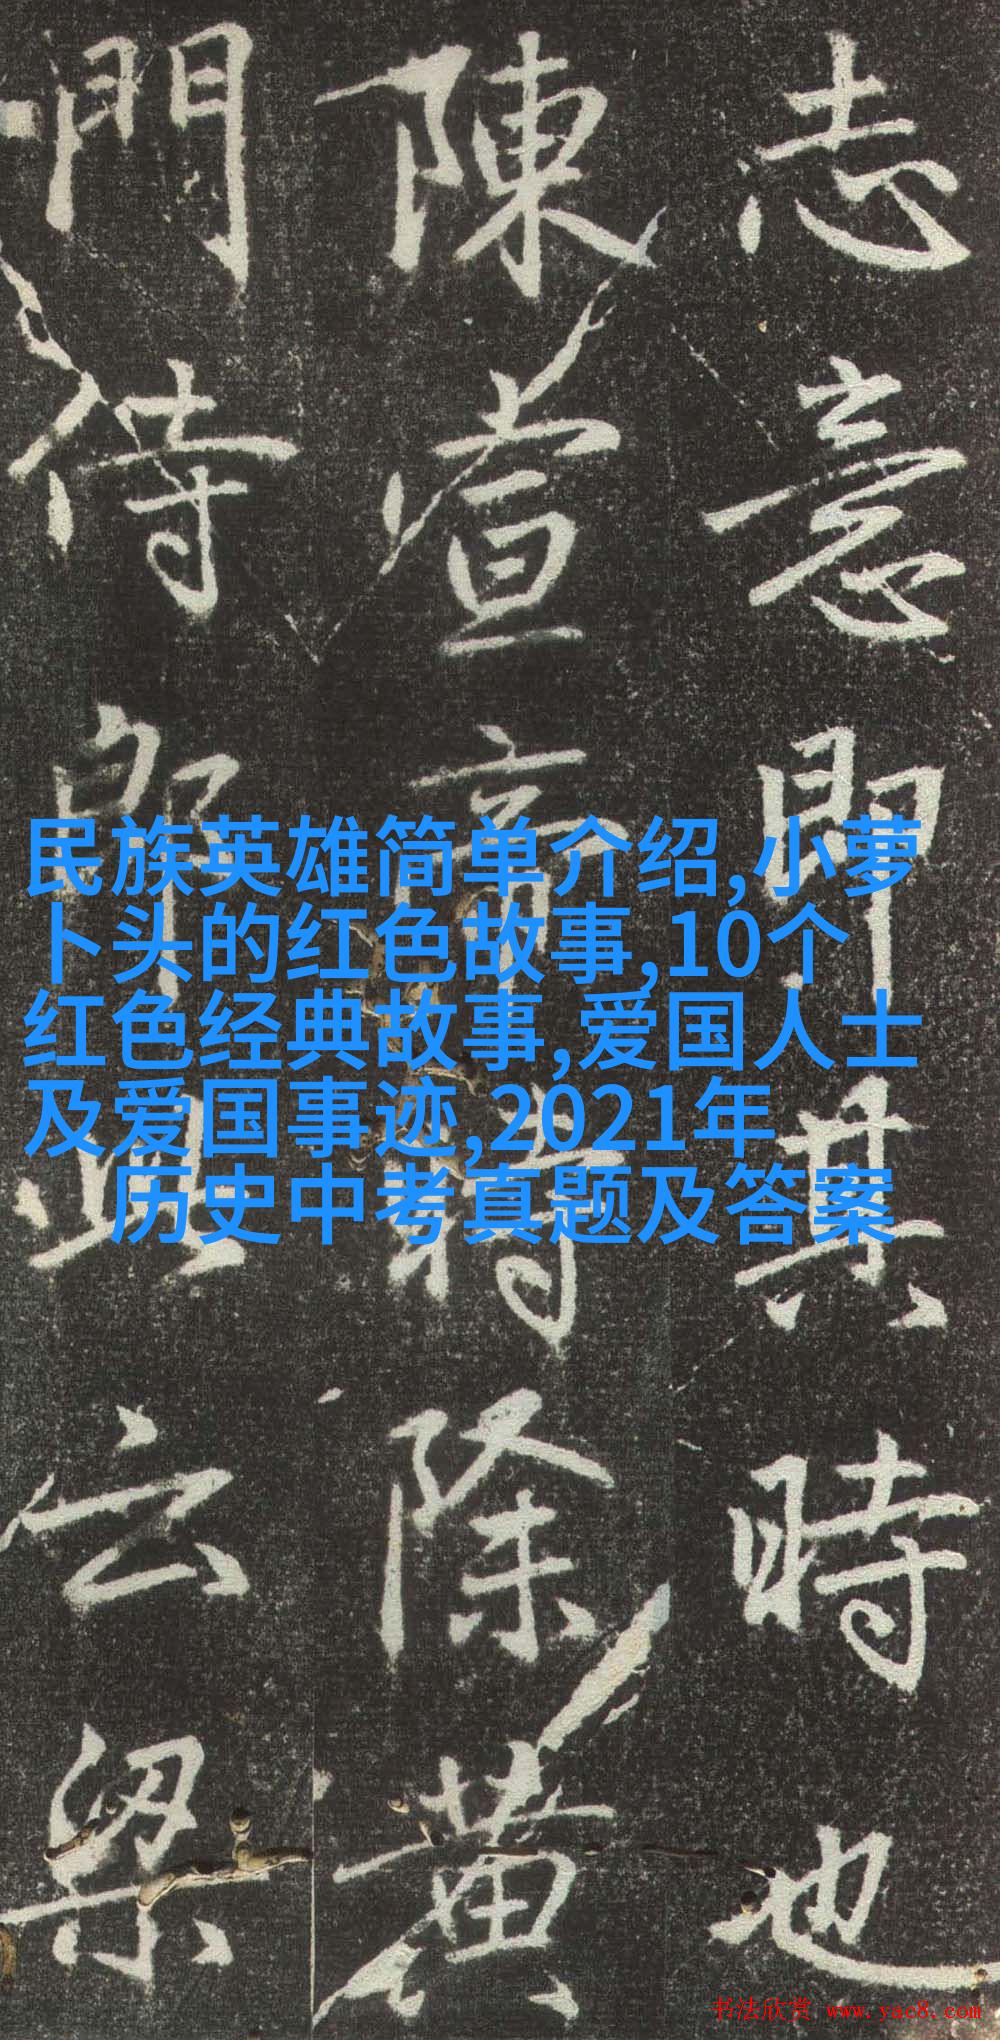 志意即其時也
陳宣帝時除黃
門侍郎云梁
民族英雄简单介绍,小萝
卜头的红色故事,10个
红色经典故事,爱国人士
及爱国事迹,2021年
历史中考真题及答案
书法欣赏 www.yac8.com